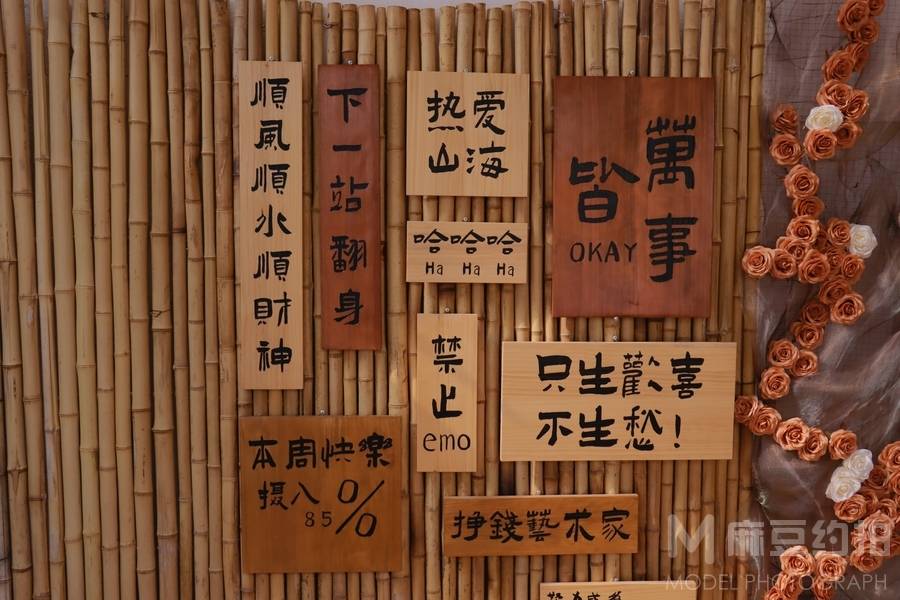 順風順水順財神
下一站翻身
热爱
山海
哈哈哈
Ha Ha Ha
萬事
皆
OKAY
禁止
emo
只生歡喜
不生愁！
本周快樂
摄八
85%
挣錢藝术家
M 麻豆约拍
MODEL PHOTOGRAPH